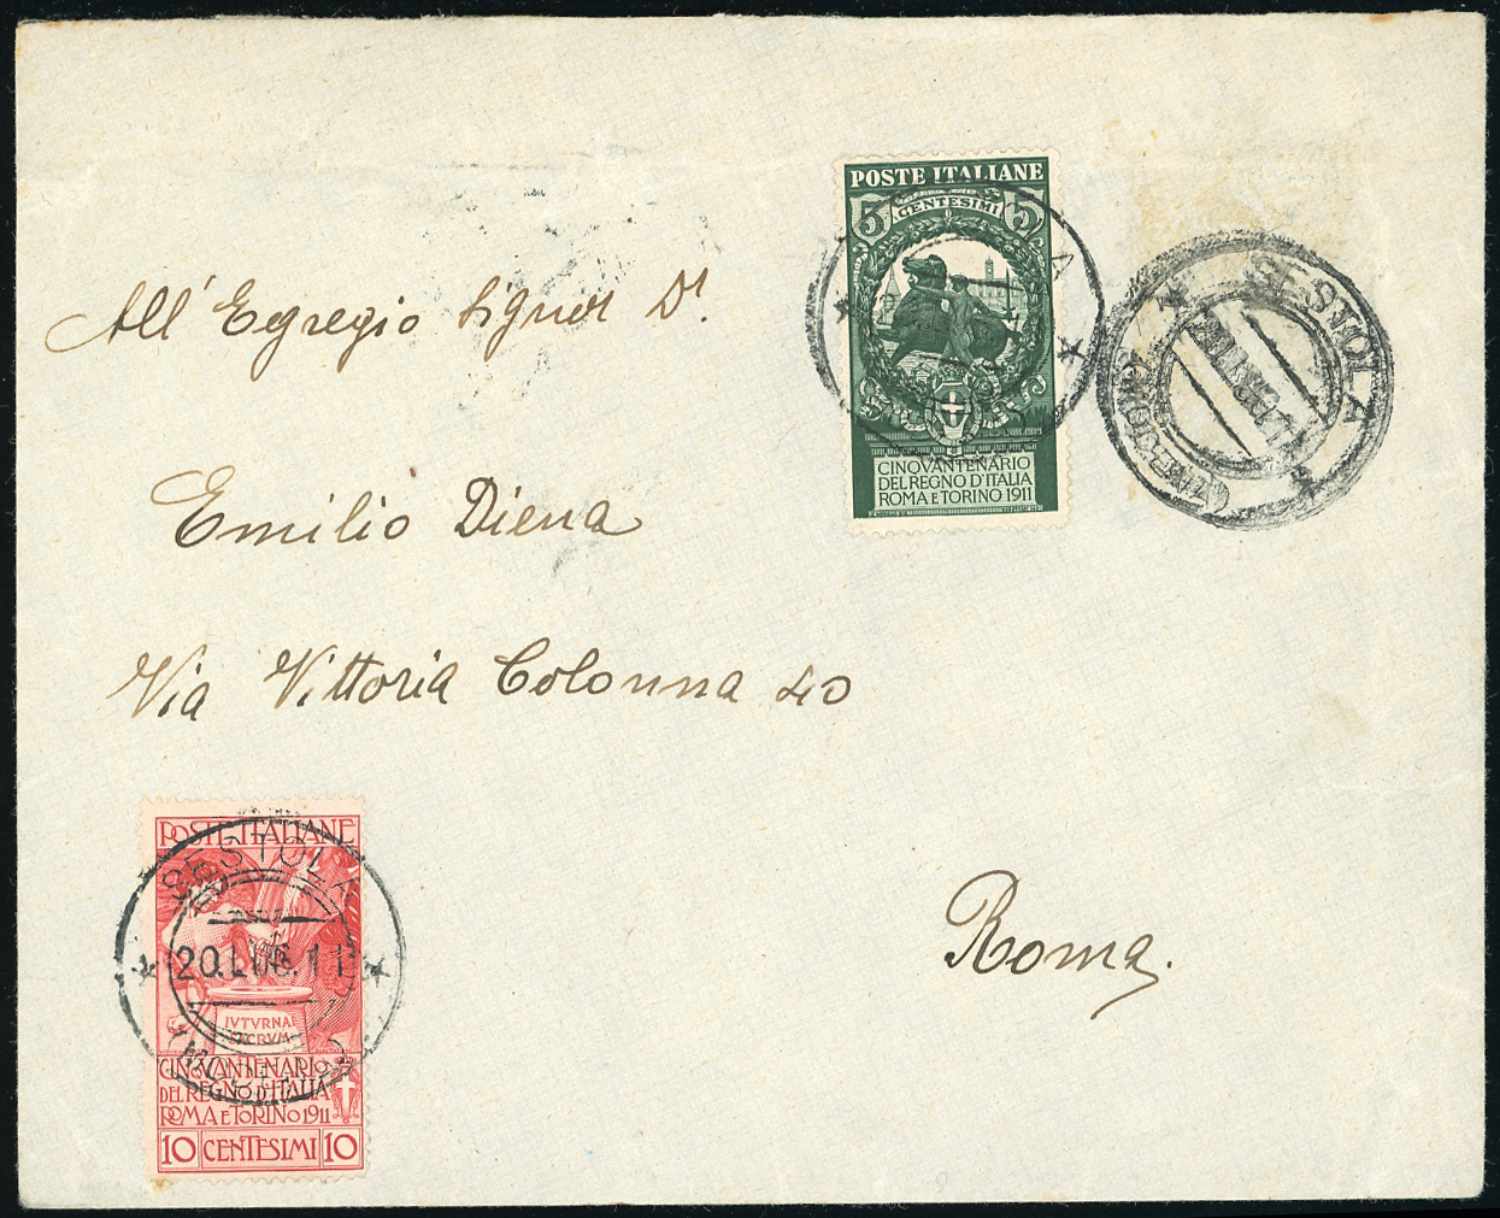 POSTE ITALIANE
5 CENTESIMI 5
CINQVANTENARIO
DEL REGNO D'ITALIA
ROMA E TORINO 1911
SESTOLA
All' Egregio Signor Dr.
Emilio Diena
Via Vittoria Colonna 40
Roma.
POSTE ITALIANE
SESTOLA
20.LUG.11
IVTVRNAI
SACRVM
CINQVANTENARIO
DEL REGNO D'ITALIA
ROMA E TORINO 1911
10 CENTESIMI 10